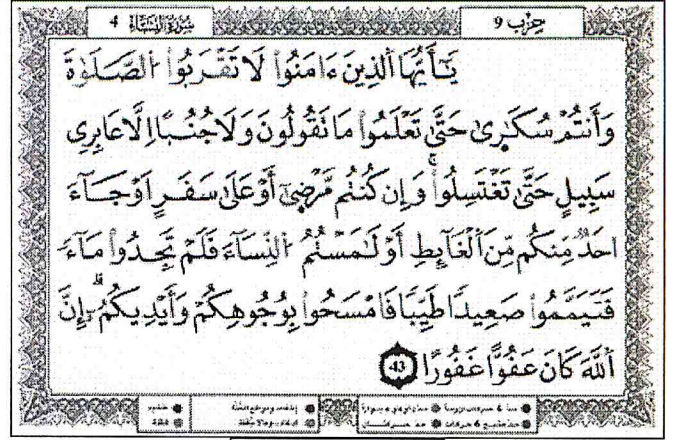 سُورَةُ النِّسَاءِ 4
حِزْب 9
يَـٰٓأَيُّهَا ٱلَّذِينَ ءَامَنُوا۟ لَا تَقْرَبُوا۟ ٱلصَّلَوٰةَ
وَأَنتُمْ سُكَـٰرَىٰ حَتَّىٰ تَعْلَمُوا۟ مَا تَقُولُونَ وَلَا جُنُبًا اِلَّا عَابِرِى
سَبِيلٍ حَتَّىٰ تَغْتَسِلُوا۟ۚ وَإِن كُنتُم مَّرْضَىٰٓ أَوْ عَلَىٰ سَفَرٍ اَوْ جَآءَ
احَدٌ مِّنكُم مِّنَ ٱلْغَآئِطِ أَوْ لَـٰمَسْتُمُ ٱلنِّسَآءَ فَلَمْ تَجِدُوا۟ مَآءً
فَتَيَمَّمُوا۟ صَعِيدًا طَيِّبًا فَامْسَحُوا۟ بِوُجُوهِكُمْ وَأَيْدِيكُمُۥٓۗ إِنَّ
ٱللَّهَ كَانَ عَفُوًّا غَفُورًا 43